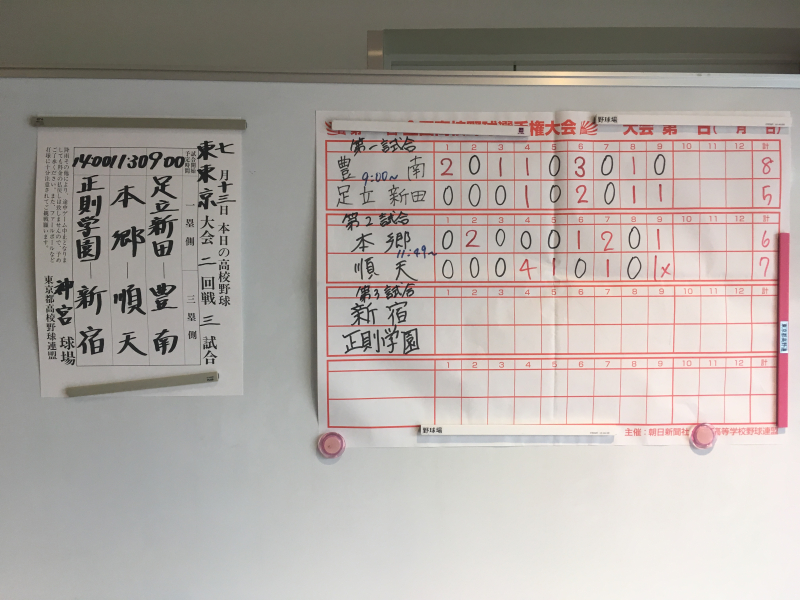 七月十三日 本日の高校野球
東東京大会 二回戦 三試合
試合開始予定時間 一塁側 三塁側
9:00 足立新田 ー 豊南
11:30 本郷 ー 順天
14:00 正則学園 ー 新宿
神宮球場
東京都高校野球連盟
野球場
権大会 大会 第 日( 月 日)
第一試合 1 2 3 4 5 6 7 8 9 10 11 12 計
豊南 2 0 1 1 0 3 0 1 0 8
9:00~
足立新田 0 0 0 1 0 2 0 1 1 5
第2試合 1 2 3 4 5 6 7 8 9 10 11 12 計
本郷 0 2 0 0 0 1 2 0 1 6
11:49~
順天 0 0 0 4 1 0 1 0 1x 7
第3試合 1 2 3 4 5 6 7 8 9 10 11 12 計
新宿
正則学園
1 2 3 4 5 6 7 8 9 10 11 12 計
野球場
主催:朝日新聞社 高等学校野球連盟